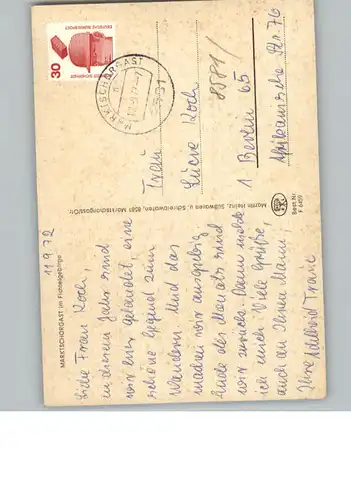 MARKTSCHORGAST im Fichtelgebirge
11.9.72
Liebe Frau Koch,
in diesem Jahr sind
wir hier gelandet, eine
schöne Gegend zum
Wandern. Und das
machen wir ausgiebig.
Ende des Monats sind
wir zurück. Dann melde
ich mich. Viele Grüße,
auch an Ihren Mann!
Ihre Adelheid
Moritz Heinz, Süßwaren u. Schreibwaren, 8581 Marktschorgast/Ofr.
Best.Nr.
30
DEUTSCHE BUNDESPOST
MARKTSCHORGAST
8581
Frau
Koch
1 Berlin 65
Afrikanische Str. 76